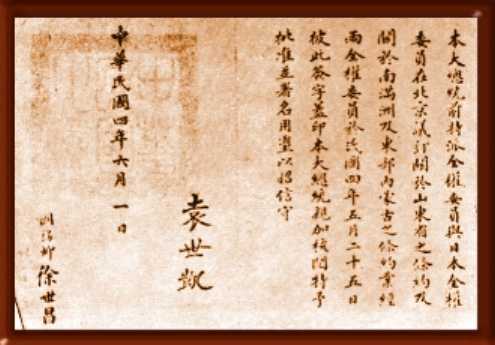 本大總統前特派全權委員與日本全權
委員在北京議訂關於山東省之條約及
關於南滿洲及東部內蒙古之條約業經
兩全權委員於民國四年五月二十五日
彼此簽字蓋印本大總統親加校閱特予
批准並署名用璽以昭信守
袁世凱
中華民國四年六月一日
國務卿 徐世昌